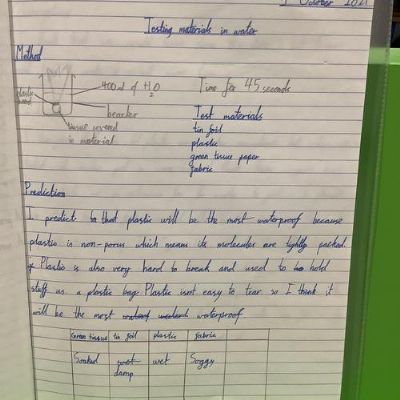 1 October 2021
Testing materials in water
Method
400ml of H2O
Time for 45 seconds
beacker
Test materials
tissue covered
in material
tin foil
plastic
green tissue paper
fabric
Prediction
I predict to that plastic will be the most waterproof because
plastic is non-porus which means its molecules are tightly packed.
Plastic is also very hard to break and used to hold
stuff as a plastic bag. Plastic isnt easy to tear so I think it
will be the most waterproof.
Green tissue tin foil plastic fabric
Soaked wet wet Soggy
damp